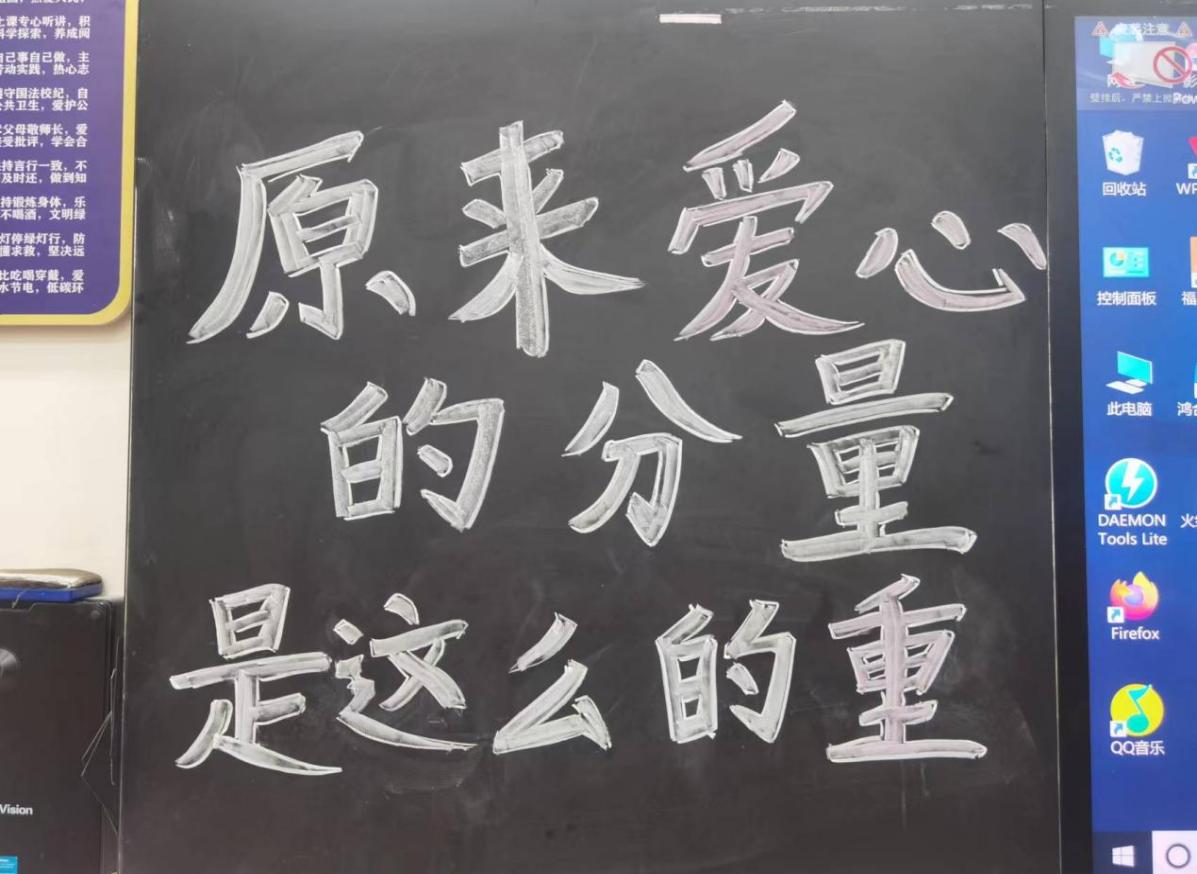 上课专心听讲，积
科学探索，养成阅
自己事自己做，主
劳动实践，热心志
遵守国法校纪，自
公共卫生，爱护公
父母敬师长，爱
接受批评，学会合
持言行一致，不
及时还，做到知
持锻炼身体，乐
不喝酒，文明绿
灯停绿灯行，防
懂求救，坚决远
比吃喝穿戴，爱
水节电，低碳环
原来爱心
的分量
是这么的重
安装注意
回收站
控制面板
此电脑
DAEMON
Tools Lite
Firefox
QQ音乐
Vision